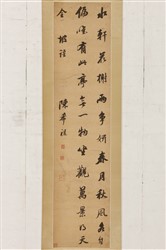 水軒花榭兩爭妍春月秋風各自
偏惟有此亭無一物坐觀萬景得天
全 坡詩
陳希祖